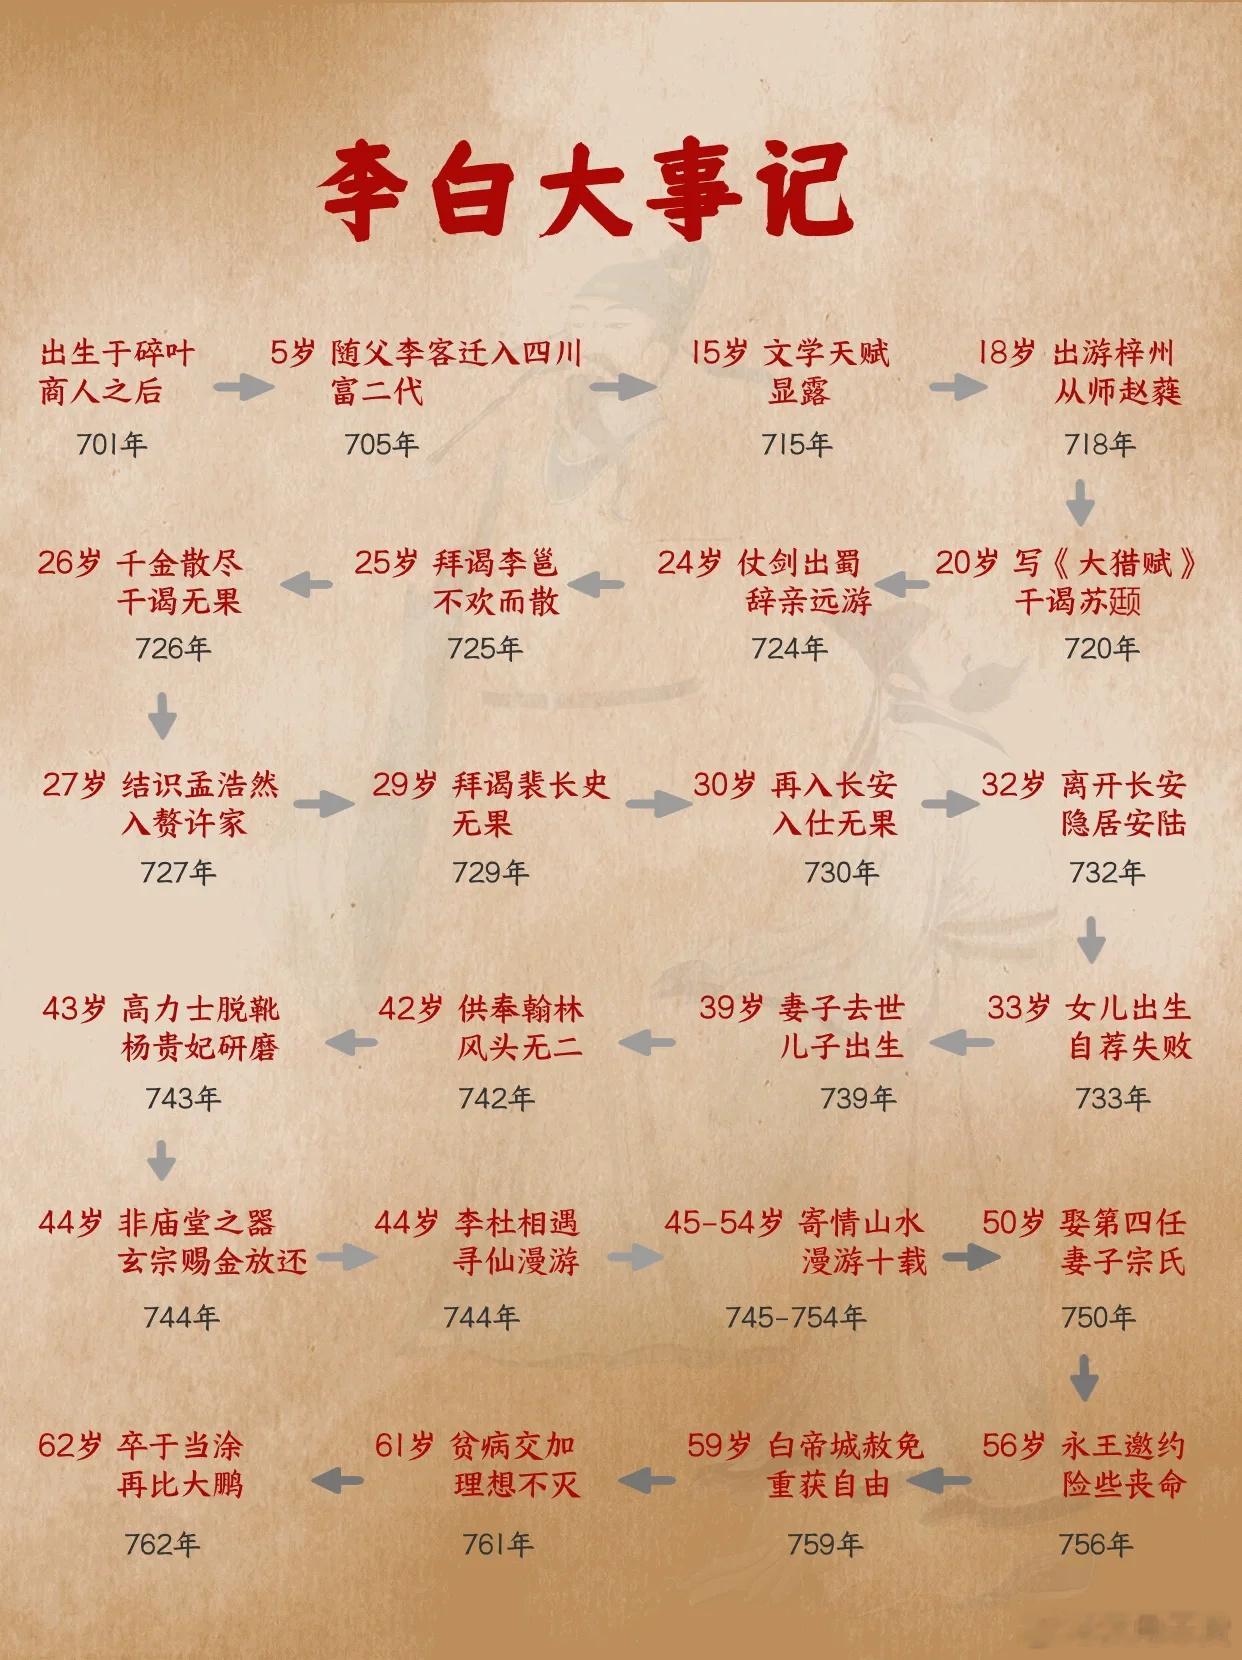 李白大事记
出生于碎叶
商人之后
701年
5岁 随父李客迁入四川
富二代
705年
15岁 文学天赋
显露
715年
18岁 出游梓州
从师赵蕤
718年
20岁 写《大猎赋》
干谒苏颋
720年
24岁 仗剑出蜀
辞亲远游
724年
25岁 拜谒李邕
不欢而散
725年
26岁 千金散尽
干谒无果
726年
27岁 结识孟浩然
入赘许家
727年
29岁 拜谒裴长史
无果
729年
30岁 再入长安
入仕无果
730年
32岁 离开长安
隐居安陆
732年
33岁 女儿出生
自荐失败
733年
39岁 妻子去世
儿子出生
739年
42岁 供奉翰林
风头无二
742年
43岁 高力士脱靴
杨贵妃研磨
743年
44岁 非庙堂之器
玄宗赐金放还
744年
44岁 李杜相遇
寻仙漫游
744年
45-54岁 寄情山水
漫游十载
745-754年
50岁 娶第四任
妻子宗氏
750年
56岁 永王邀约
险些丧命
756年
59岁 白帝城赦免
重获自由
759年
61岁 贫病交加
理想不灭
761年
62岁 卒于当涂
再比大鹏
762年